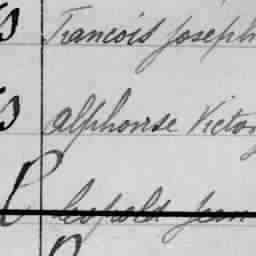 s François Joseph
s Alphonse Victor
Leopold Jean